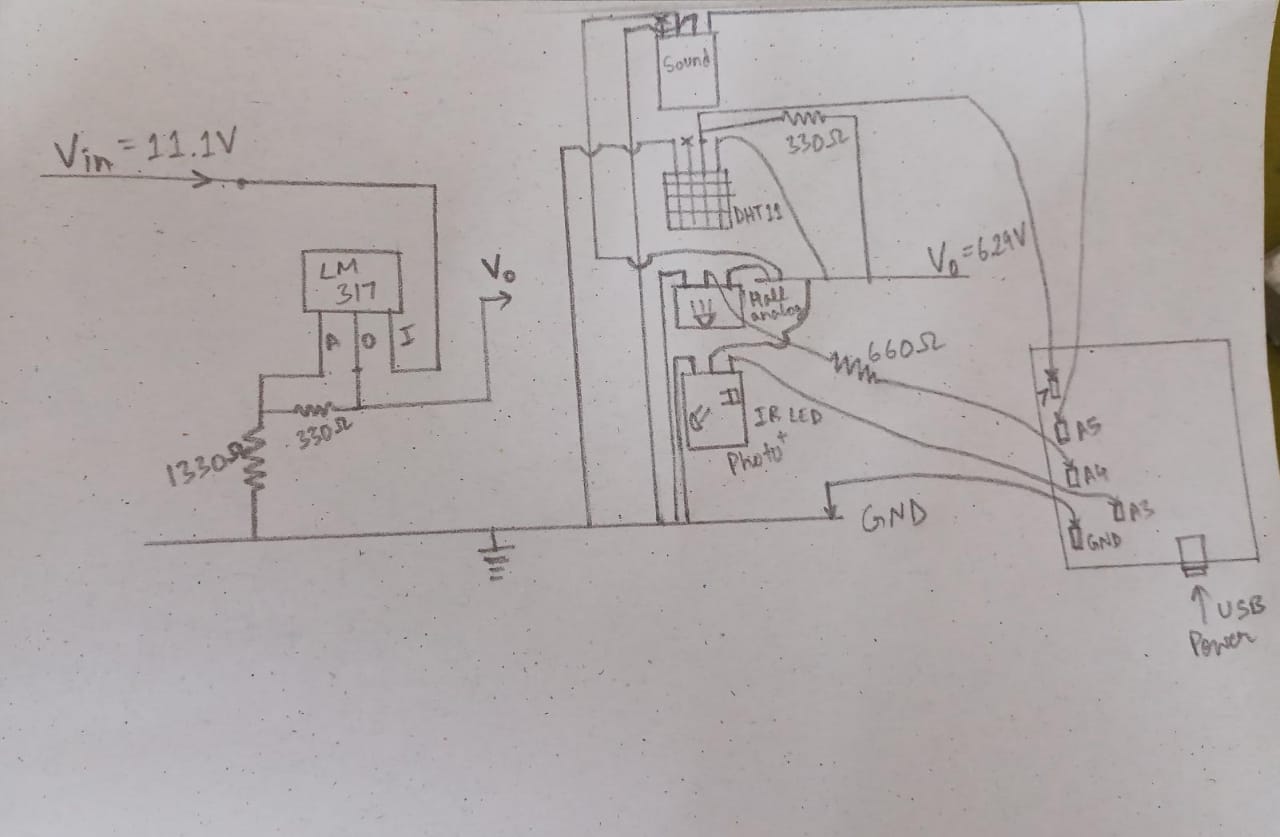 Vin = 11.1V
LM
317
A
O
I
Vo
330Ω
1330Ω
Sound
330Ω
DHT11
Vo = 6.29V
Hall
analog
660Ω
IR LED
+
Photo
GND
7
A5
A4
A3
GND
USB
Power